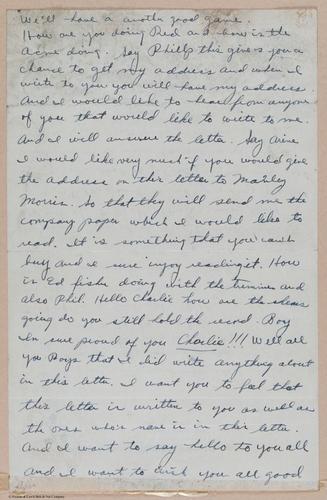 We'll have a another good game.
How are you doing Red and how is the
Acme doing. Say Philps this gives you a
chance to get my address and when I
write to you you will have my address.
And I would like to hear from anyone
of you that would like to write to me.
And I will answere the letter. Say
I would like very much if you would give
the address on this letter to Manley
Morris. So that they will send me the
company paper which I would like to
read. It is something that you can't
buy and I sure injoy reading it. How
is Ed fisher doing with the and
also Phil. Hello Charlie how are the
going do you still hold the record. Boy
Im sure proud of you Charlie!!! Well all
you Boys that I did write anything about
in this letter. I want you to feel that
this letter is written to you as well as
the ones who's name is in this letter.
And I want to say hello to you all
and I want to wish you all good